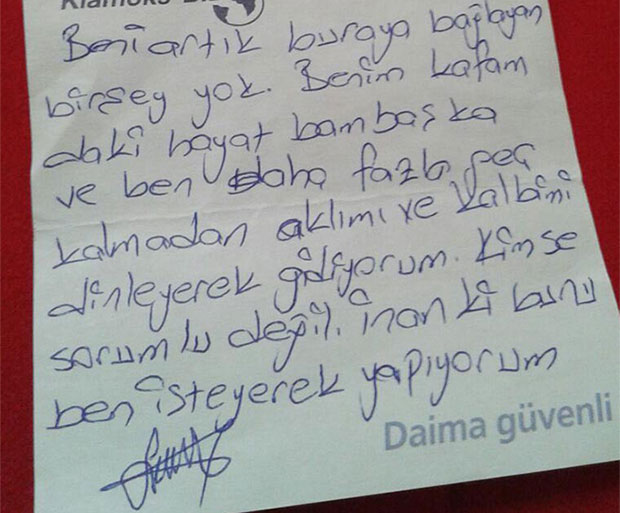 Beni artık buraya bağlayan
birşey yok. Benim kafam
daki hayat bambaşka
ve ben daha fazla geç
kalmadan aklımı ve kalbimi
dinleyerek gidiyorum. Kimse
sorumlu değil. İnan ki bunu
ben isteyerek yapıyorum
Daima güvenli